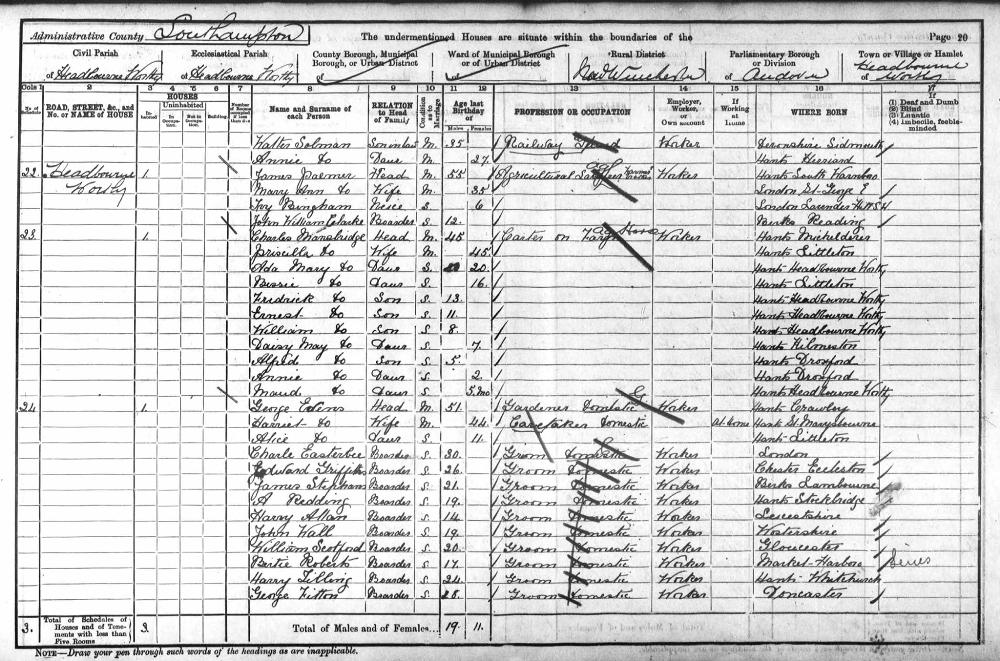 Administrative County Southampton The undermentioned Houses are situate within the boundaries of the Page 20
Civil Parish Ecclesiastical Parish County Borough, Municipal Borough, or Urban District Ward of Municipal Borough or of Urban District Rural District Parliamentary Borough or Division Town or Village or Hamlet
of Headbourne Worthy of Headbourne Worthy of of of New Winchester of Andover of Headbourne Worthy
Cols 1 2 3 4 5 6 7 8 9 10 11 12 13 14 15 16 17
No. of Schedule ROAD, STREET, &c., and No. or NAME of HOUSE HOUSES Inhabited Uninhabited In Occupation. Not in Occupation. Building. Name and Surname of each Person RELATION to Head of Family Condition as to Marriage Age last Birthday of Males Females PROFESSION OR OCCUPATION Employer, Worker, or Own account If Working at Home WHERE BORN If (1) Deaf and Dumb (2) Blind (3) Lunatic (4) Imbecile, feeble-minded
Walter Solman Son in law M. 35 Railway Worker Devonshire Sidmouth
Annie do Daur M. 27 Hants Herriard
22 Headbourne Worthy 1 James Palmer Head M. 55 Agricultural Worker Hants South Warnboro
Mary Ann do Wife M. 35 London St George E
Ivy Bingham Neice S. 6 London Lavender
John William Clarke Boarder S. 12 Berks Reading
23 1. Charles Mansbridge Head M. 45 Carter on Farm Horse Worker Hants Micheldever
Priscilla do Wife M. 45 Hants Littleton
Ada Mary do Daur S. 20. Hants Headbourne Worthy
Bessie do Daur S. 16. Hants Littleton
Fredrick do Son S. 13. Hants Headbourne Worthy
Ernest do Son S. 11. Hants Headbourne Worthy
William do Son S. 8. Hants Headbourne Worthy
Daisy May do Daur S. 7. Hants Kilmeston
Alfred do Son S. 5. Hants Droxford
Annie do Daur S. 2. Hants Droxford
Maud do Daur S. 5. Mo Hants Headbourne Worthy
24 1. George Edens Head M. 51. Gardener Domestic Worker Hants Crawley
Harriet do Wife M. 44. Caretaker Domestic At home Hants St Marysbourne
Alice do Daur S. 11. Hants Littleton
Charle Easterbee Boarder S. 30. Groom Domestic Worker London
Edward Griffith Boarder S. 26. Groom Domestic Worker Chester Eccleston
James Stephens Boarder S. 21. Groom Domestic Worker Berks Lambourne
A Ridding Boarder S. 19. Groom Domestic Worker Hants Stockbridge
Harry Allan Boarder S. 14 Groom Domestic Worker Leicestshire
John Wall Boarder S. 19. Groom Domestic Worker Wostershire
William Scotford Boarder S. 20. Groom Domestic Worker Gloucester
Bertie Roberts Boarder S. 17. Groom Domestic Worker Market-Harboro
Harry Tilling Boarder S. 24. Groom Domestic Worker Hants Whitchurch
George Fitton Boarder S. 28. Groom Domestic Worker Doncaster
3. Total of Schedules of Houses and of Tenements with less than Five Rooms 3. Total of Males and of Females... 19. 11.
NOTE—Draw your pen through such words of the headings as are inapplicable.